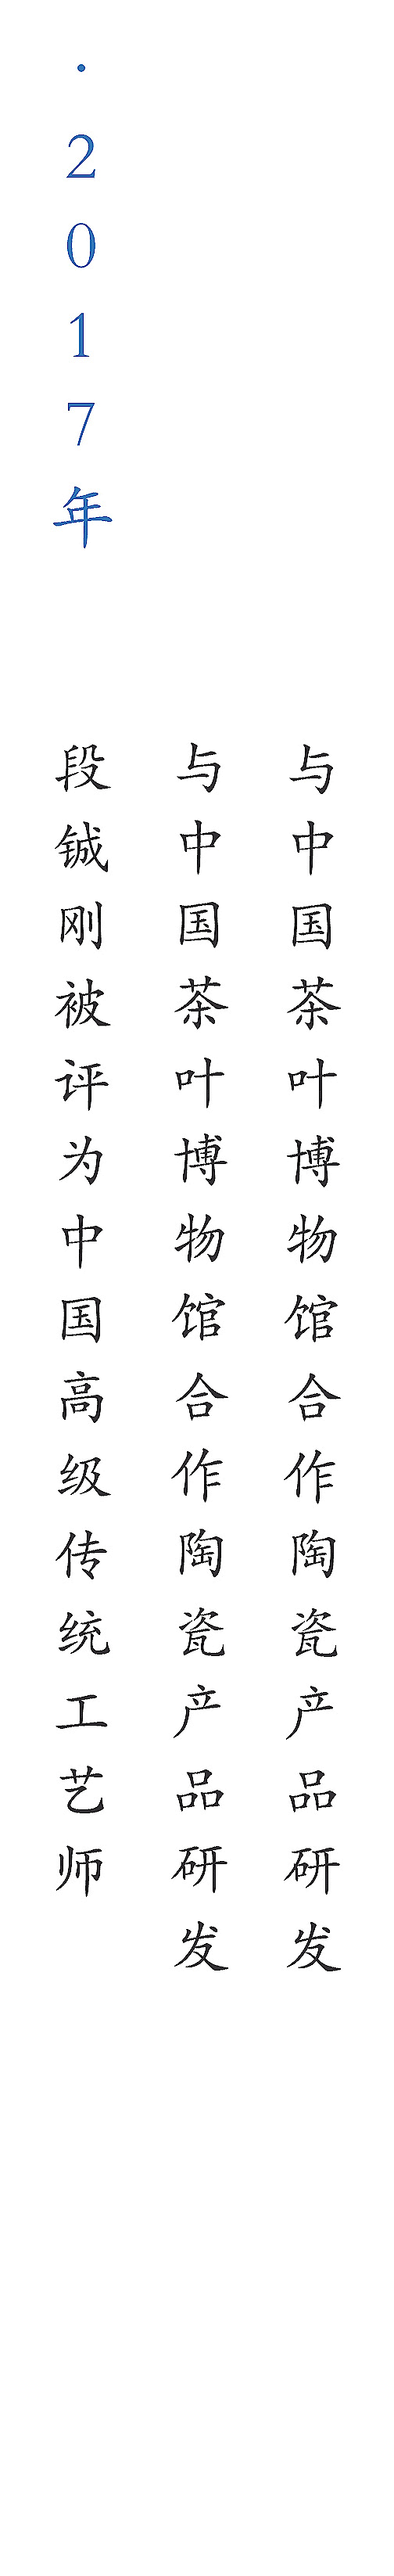 ·2017年
段铖刚被评为中国高级传统工艺师
与中国茶叶博物馆合作陶瓷产品研发
与中国茶叶博物馆合作陶瓷产品研发